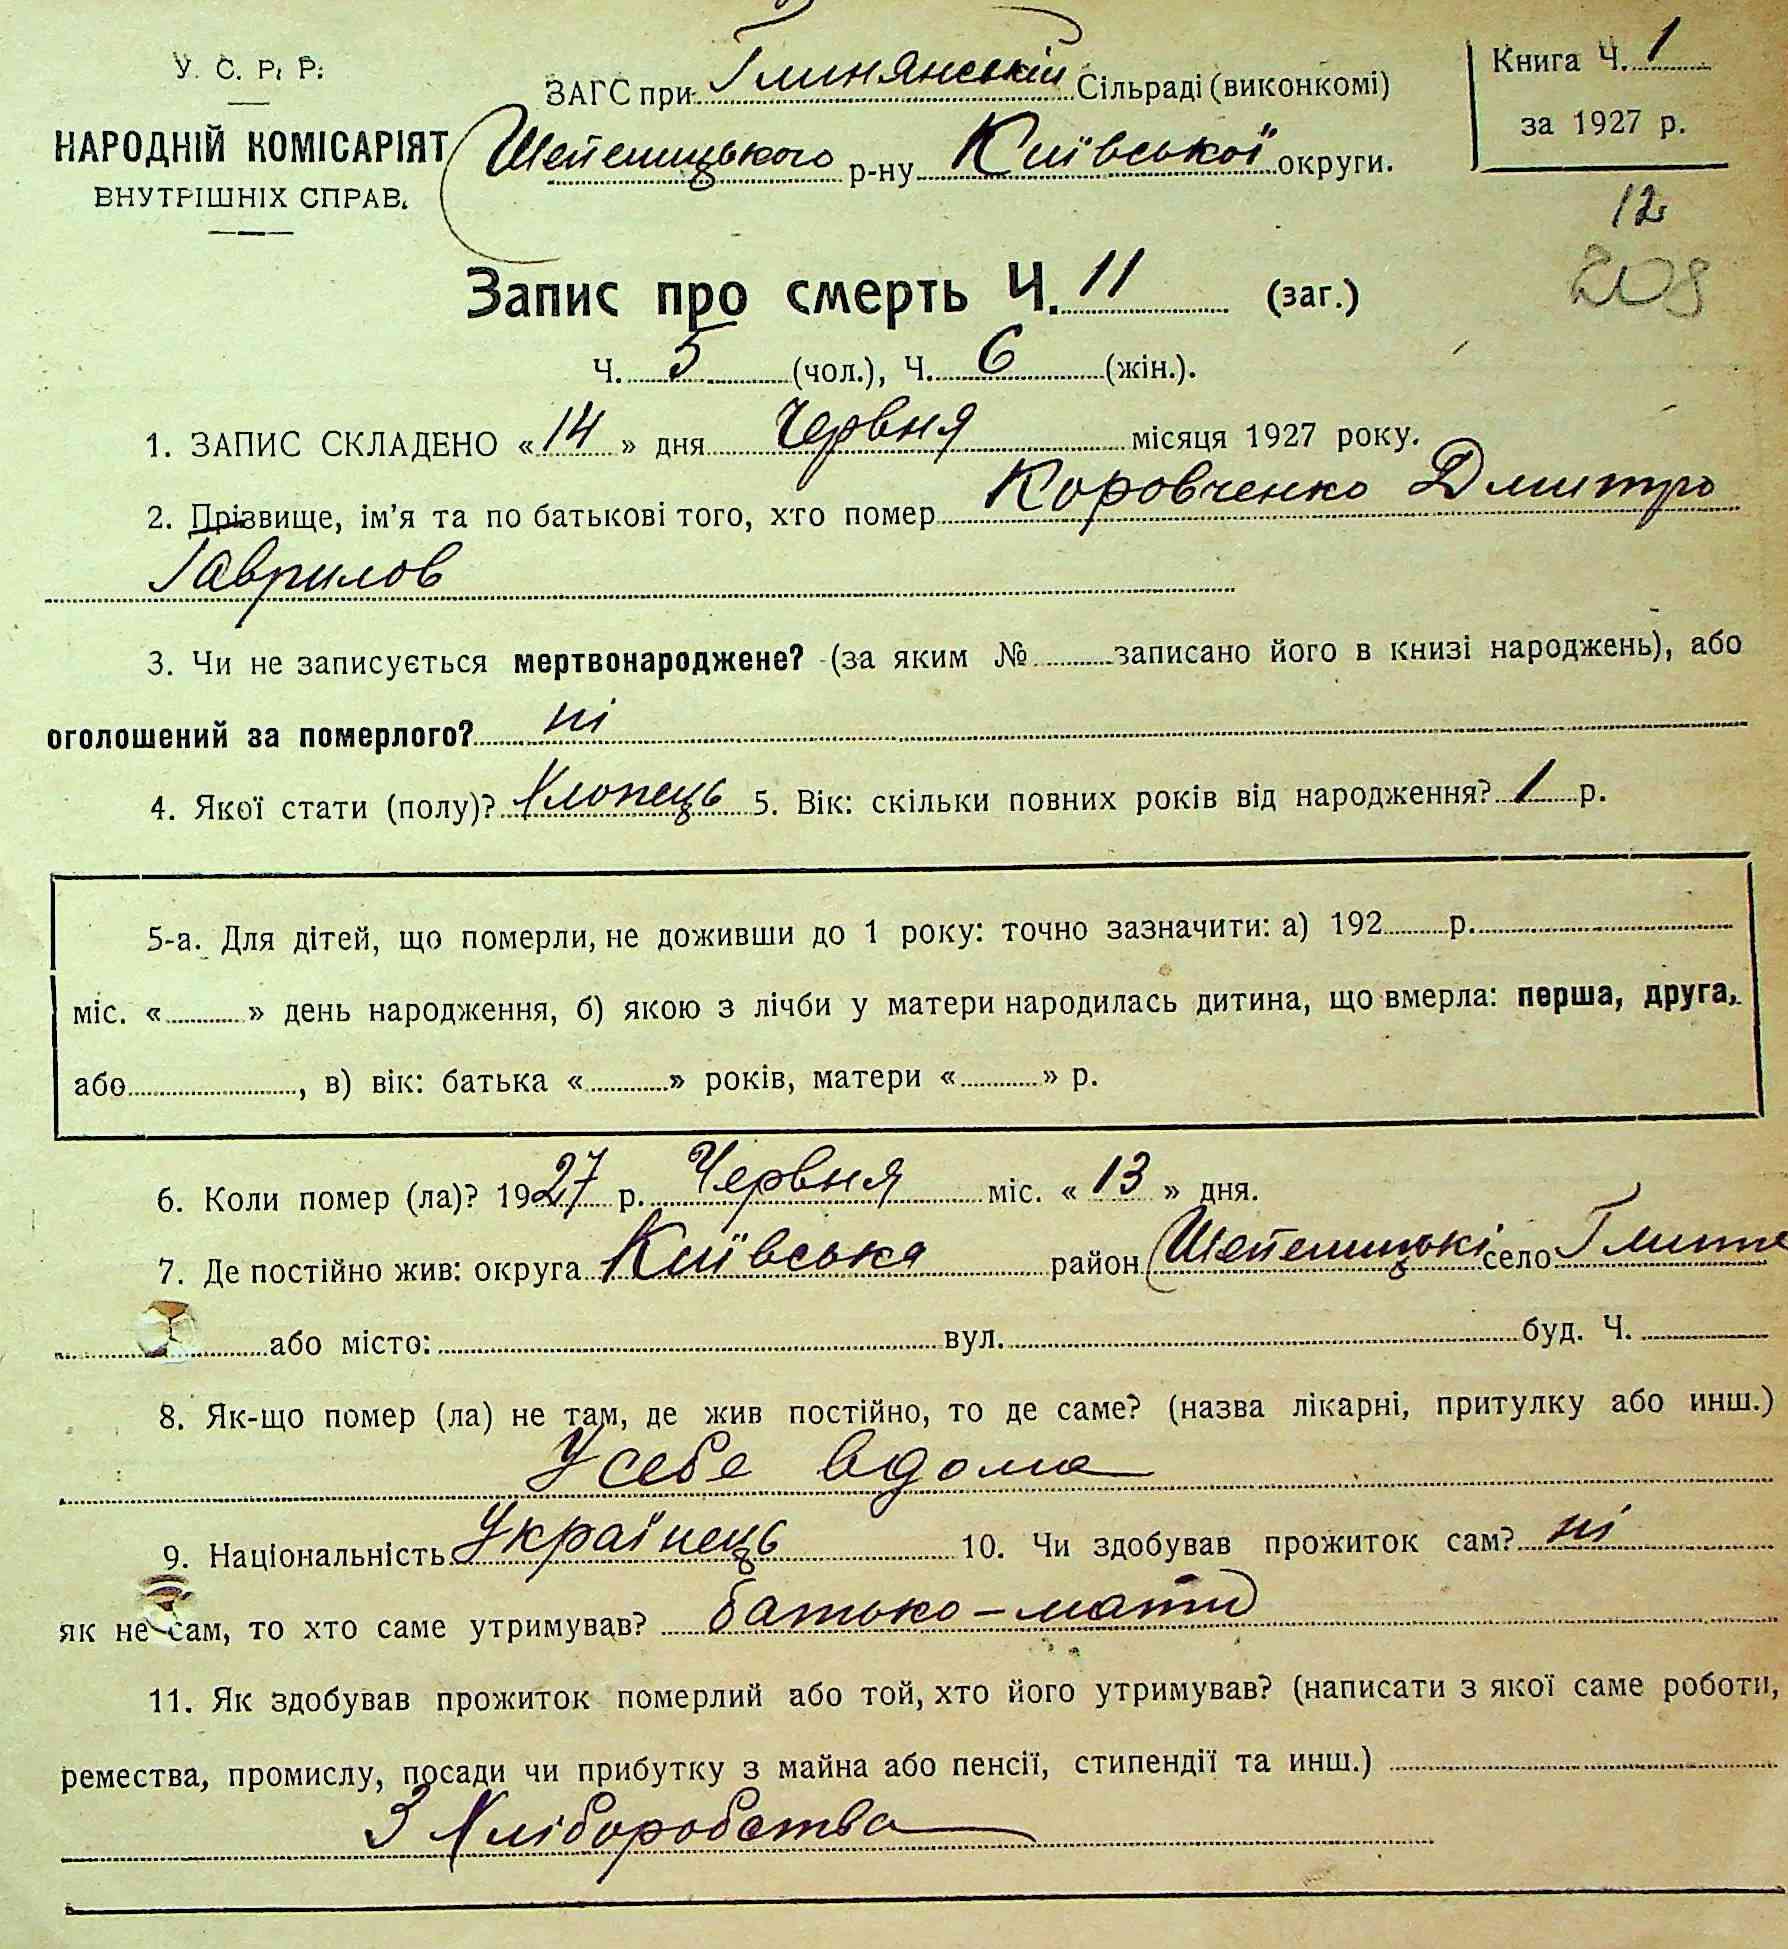 У. С. Р. Р.
НАРОДНІЙ КОМІСАРІЯТ
ВНУТРІШНІХ СПРАВ.
ЗАГС при Глинянській Сільраді (виконкомі)
Шепелицького р-ну Київської округи.
Книга Ч. 1
за 1927 р.
12
209
Запис про смерть Ч. 11 (заг.)
Ч. 5 (чол.), Ч. 6 (жін.).
1. ЗАПИС СКЛАДЕНО «14» дня Червня місяця 1927 року.
2. Прізвище, ім'я та по батькові того, хто помер Коровченко Дмитро
Гаврилов
3. Чи не записується мертвонароджене? (за яким № записано його в книзі народжень), або
оголошений за померлого? ні
4. Якої стати (полу)? Хлопець 5. Вік: скільки повних років від народження? 1 р.
5-а. Для дітей, що померли, не доживши до 1 року: точно зазначити: а) 192 р.
міс. « » день народження, б) якою з лічби у матери народилась дитина, що вмерла: перша, друга,
або , в) вік: батька « » років, матери « » р.
6. Коли помер (ла)? 1927 р. Червня міс. «13» дня.
7. Де постійно жив: округа Київська район Шепелицькі село Глинне
або місто: вул. буд. Ч.
8. Як-що помер (ла) не там, де жив постійно, то де саме? (назва лікарні, притулку або инш.)
У себе вдома
9. Національність Українець 10. Чи здобував прожиток сам? ні
як не сам, то хто саме утримував? батько – мати
11. Як здобував прожиток померлий або той, хто його утримував? (написати з якої саме роботи,
ремества, промислу, посади чи прибутку з майна або пенсії, стипендії та инш.)
З Хліборобства